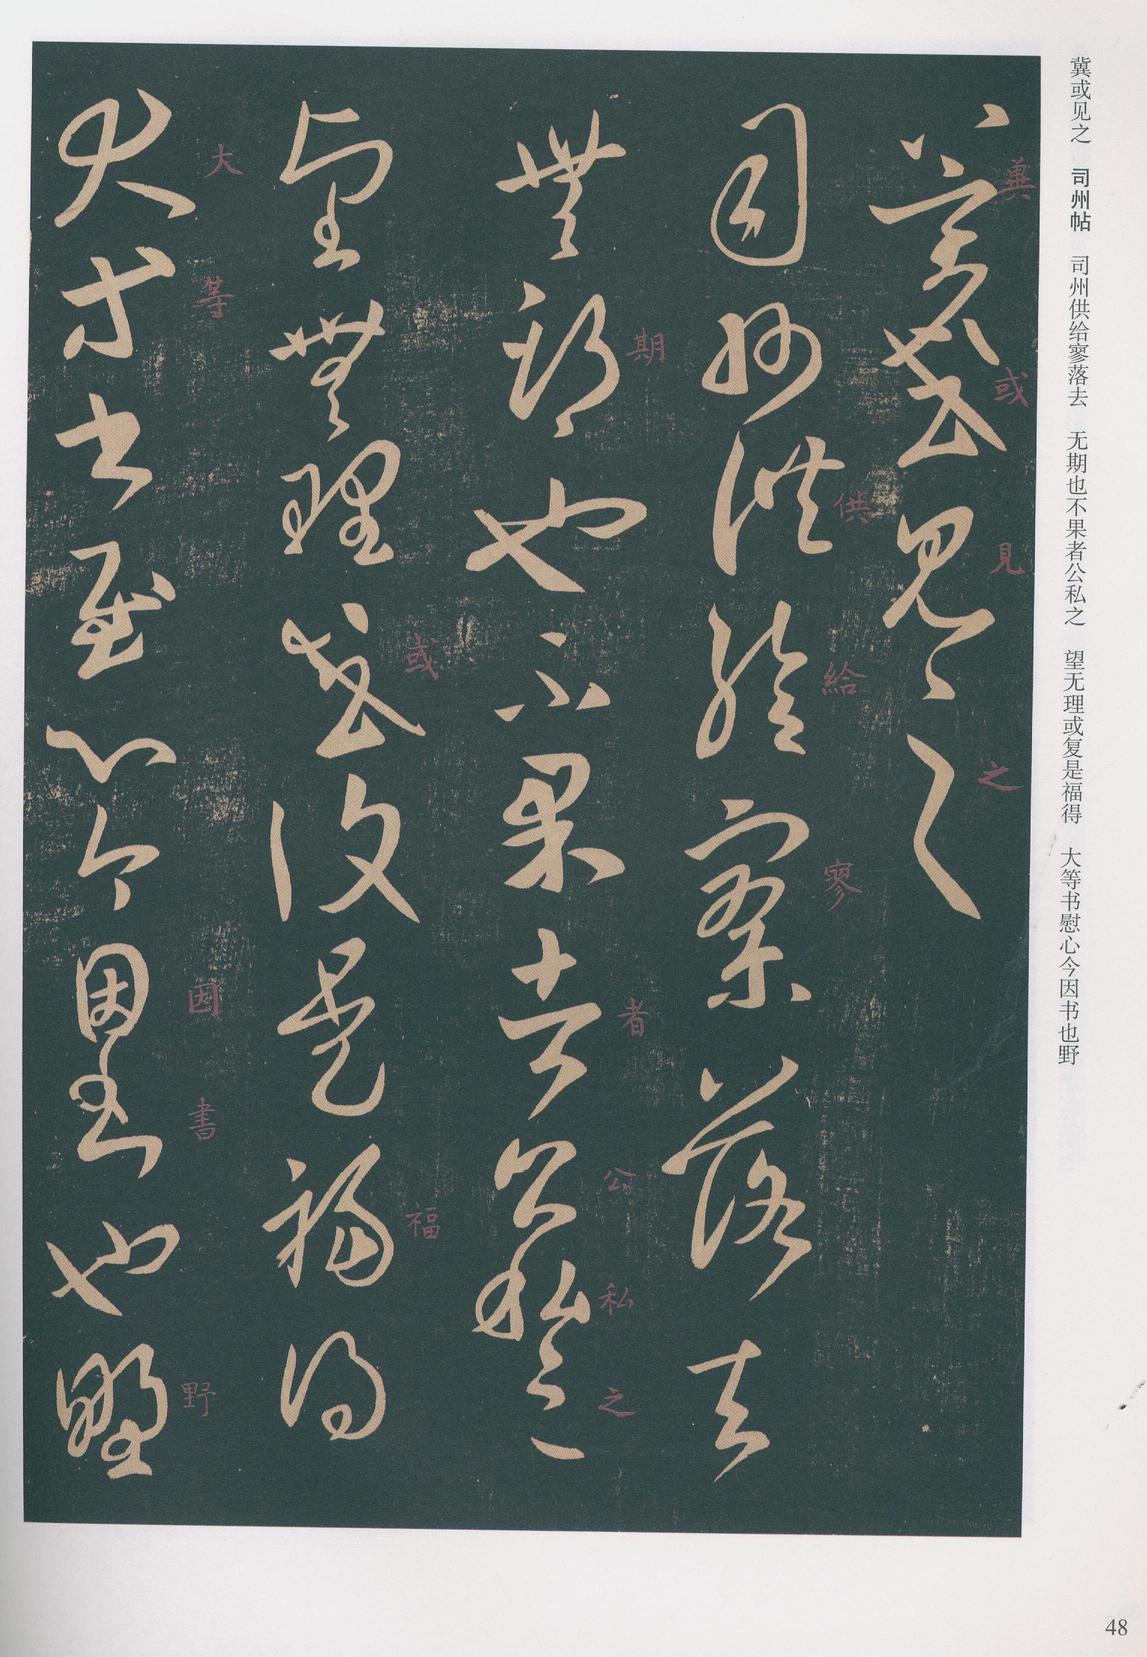 冀或见之 司州帖 司州供给寥落去 无期也不果者公私之 望无理或复是福得 大等书慰心今因书也野
冀或見之
司州供給寥落去
無期也不果者公私之
望無理或復是福得
大等書慰心今因書也野
冀
或
見
之
供
給
寥
期
者
公
私
之
或
福
大
等
因
書
野
48